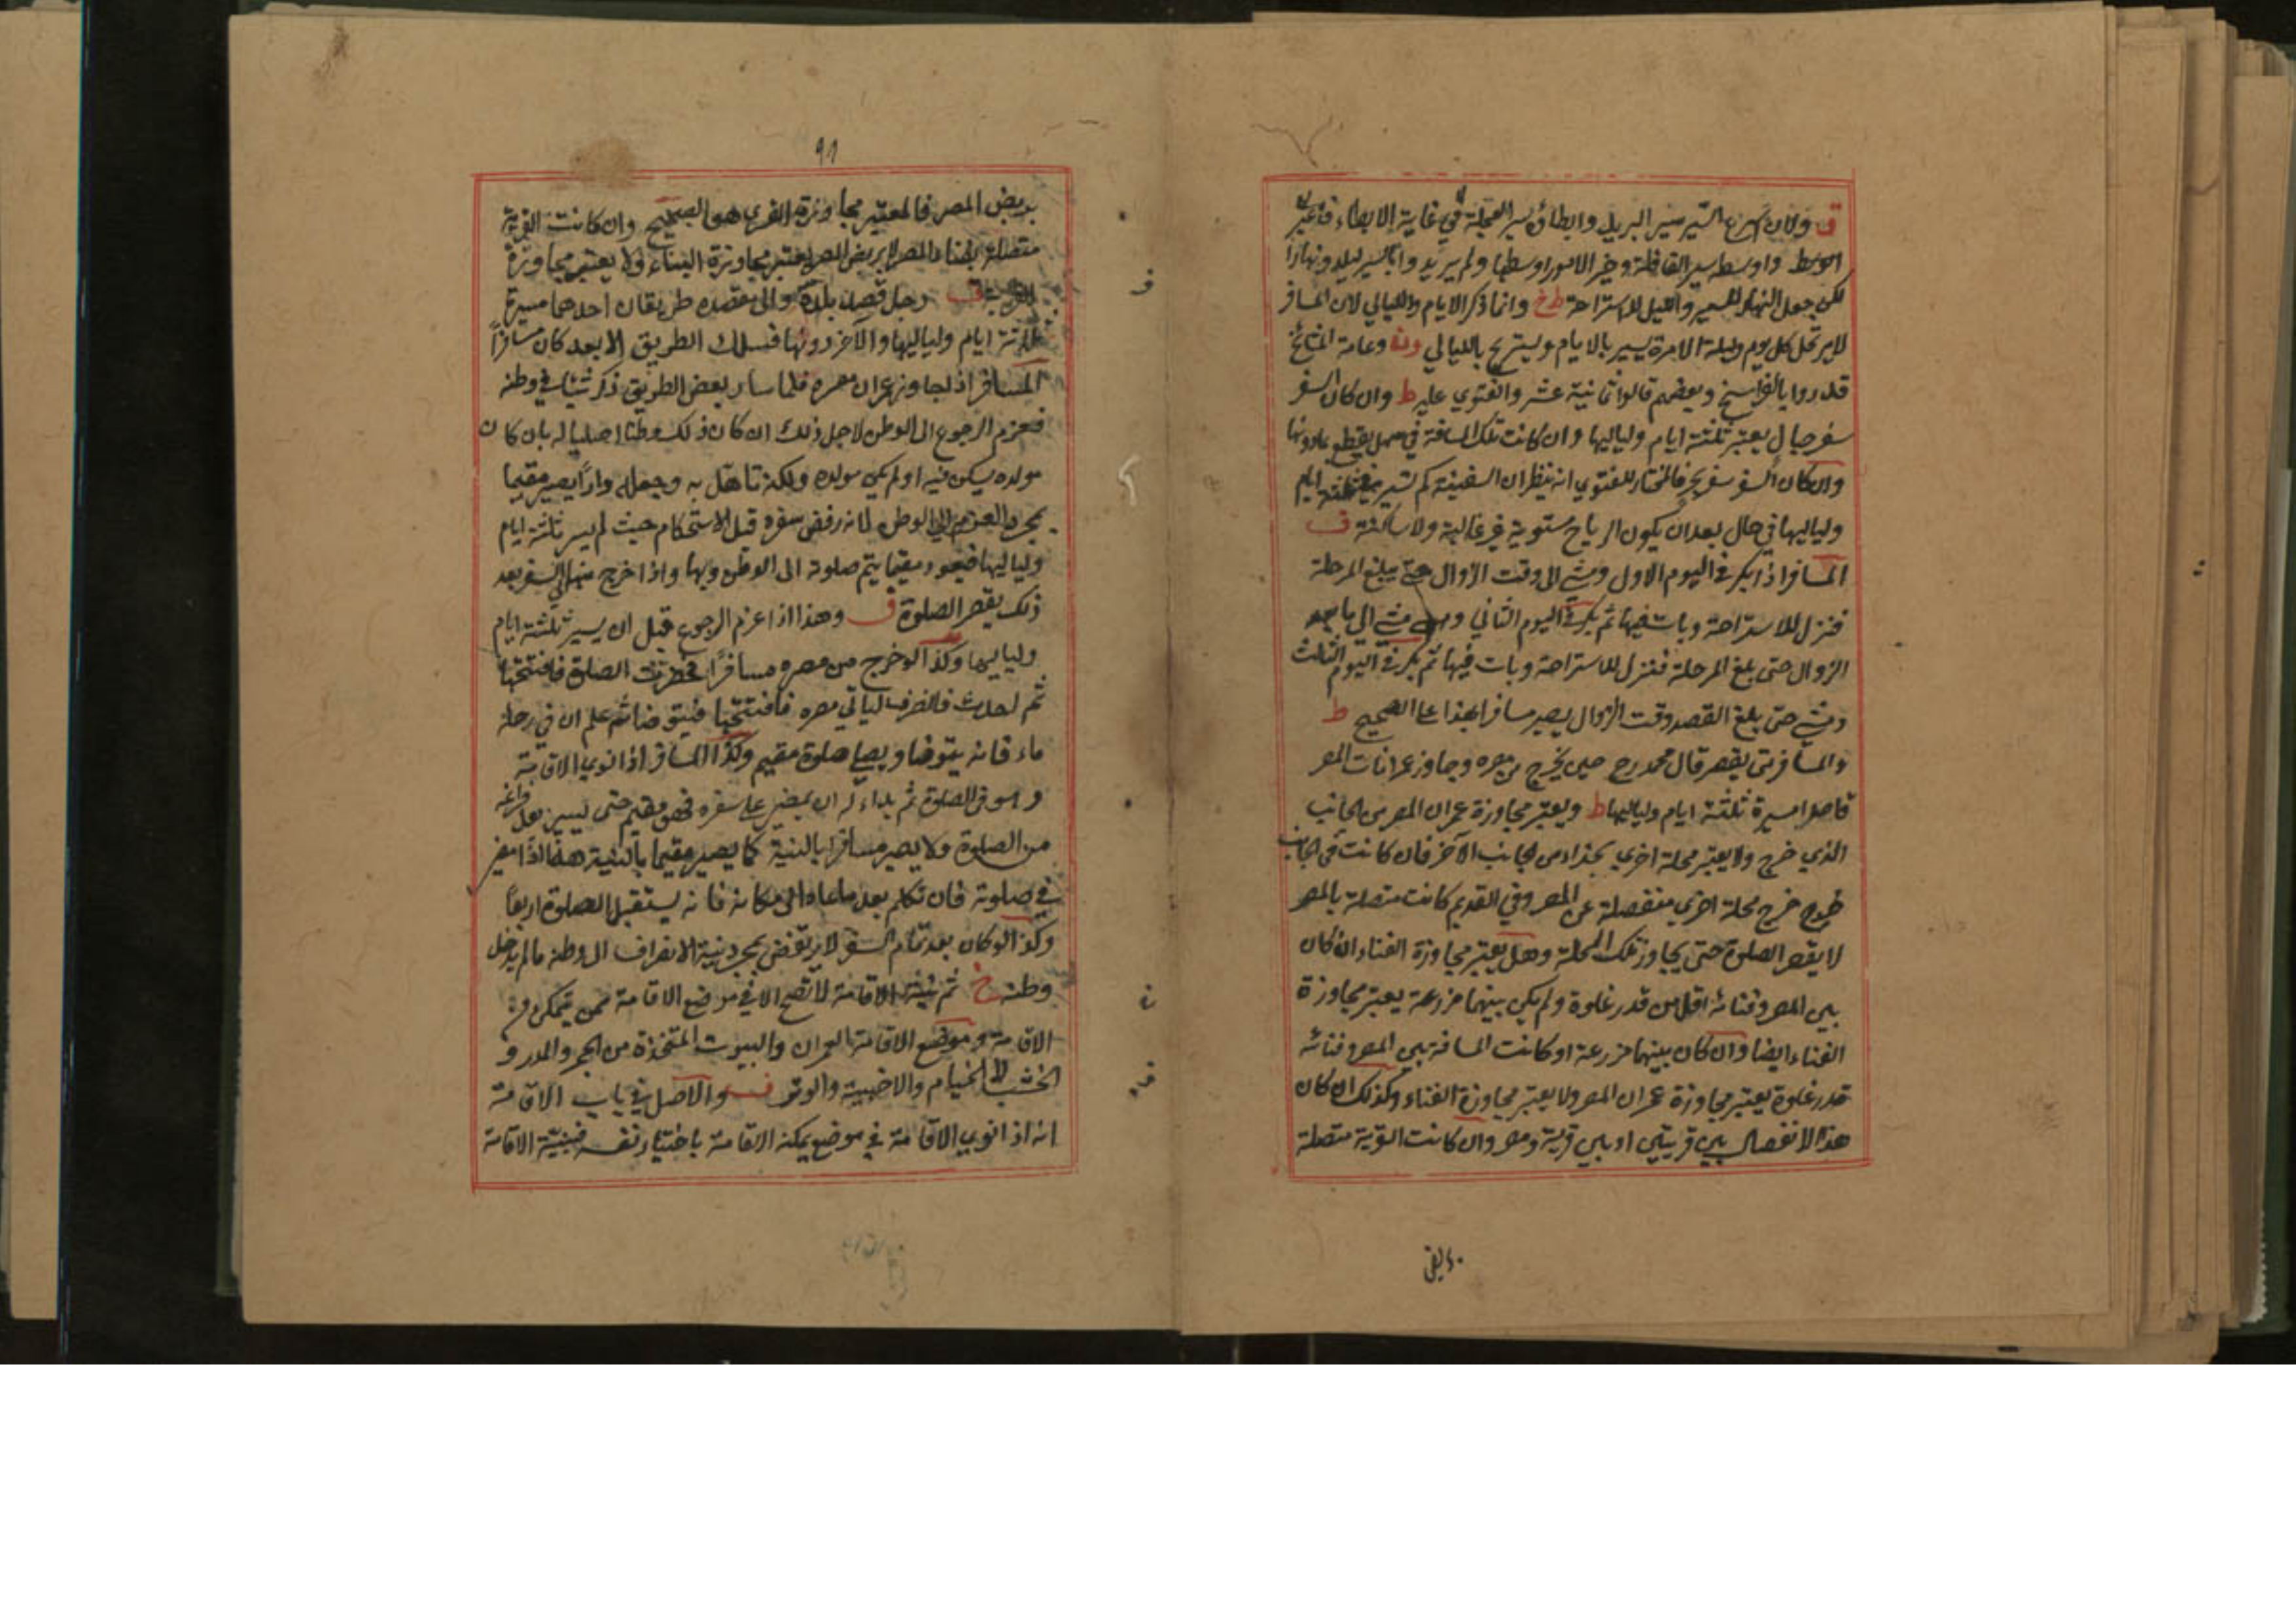 ق ولان اسرع السير سير البريد وابطاؤه سير العجلة في غاية الابطاء فاعتبر
الوسط واوسطه سير القافلة وخير الامور اوسطها ولم يريد وا بالسير ليلا ونهارا
لكن جعل النهار للسير والليل للاستراحة ط خ وانما ذكر الايام والليالي لان المسافر
لا يرتحل كل يوم وليلة الا مرة يسير بالايام ويستريح بالليالي وعامة المشائخ
قدروا بالفراسخ وبعضهم قالوا ثمانية عشر والفتوي عليه ط وان كان السفر
سفر جبال يعتبر ثلثة ايام ولياليها وان كانت تلك المسافة في سهل يقطع بما دونها
وان كان السفر سفر بحر فالمختار للفتوي انه ينظر ان السفينة كم تسير في ثلثة ايام
ولياليها في حال بعد ان يكون الرياح مستوية غير غالبة ولا ساكنة ف
المسافر اذا بكر في اليوم الاول ومشي الى وقت الزوال حتى يبلغ المرحلة
فنزل للاستراحة وبات فيها ثم بكر في اليوم الثاني ومشي الى ما بعد
الزوال حتى بلغ المرحلة فنزل للاستراحة وبات فيها ثم بكر في اليوم الثالث
ومشي حتى بلغ القصد وقت الزوال يصير مسافرا بهذا على الصحيح ط
والمسافر متى يقصر قال محمد رح حين يخرج من مصره وجاوز عمرانات المصر
قاصدا مسيرة ثلثة ايام ولياليها ط ويعتبر مجاوزة عمران المصر من الجانب
الذي خرج ولا يعتبر محلة اخري بحذاءه من الجانب الآخر فان كانت في الجانب
خرج محلة اخري منفصلة عن المصر وفي القديم كانت متصلة بالمصر
لا يقصر الصلوة حتى يجاوز تلك المحلة وهل يعتبر مجاوزة الفناء ان كان
بين المصر وفنائه اقل من قدر غلوة ولم يكن بينهما مزرعة يعتبر مجاوزة
الفناء ايضا وان كان بينهما مزرعة او كانت المسافة بين المصر وفنائه
قدر غلوة يعتبر مجاوزة عمران المصر ولا يعتبر مجاوزة الفناء وكذلك ان كان
هذا الانفصال بين قريتين او بين قرية ومصر وان كانت القرية متصلة
بربض المصر فالمعتبر مجاوزة القري هو الصحيح وان كانت القرية
متصلة بفناء المصر لا بربض المصر يعتبر مجاوزة الفناء ولا يعتبر مجاوزة
القرية ف رجل قصد بلدة والى مقصده طريقان احدهما مسيرة
ثلاثة ايام ولياليها والآخر دونها فسلك الطريق الا بعد كان مسافرًا
المسافر اذا جاوز عمران مصره فلما سار بعض الطريق ذكر شيئا في وطنه
فعزم الرجوع الى الوطن لاجل ذلك ان كان ذلك وطنا اصليا له بان كان
مولده يسكن فيه او لم يكن مولده ولكنه تاهل به وجعله دارًا يصير مقيما
بمجرد العزم الى الوطن لانه رفض سفره قبل الاستحكام حيث لم يسر ثلثة ايام
ولياليها فيعود مقيما يتم صلوته الى الوطن وبها واذا خرج منها الى السفر بعد
ذلك يقصر الصلوة ف وهذا اذا عزم الرجوع قبل ان يسير ثلثة ايام
ولياليها وكذا لو خرج من مصره مسافرًا فحضرت الصلوة فافتتحها
ثم احدث فانصرف لياتي مصره فيتوضا ثم علم ان في رحله
ماء فانه يتوضا ويصلي صلوة مقيم وكذا المسافر اذا نوي الاقامة
وهو في الصلوة ثم بداء له ان يمضي على سفره فهو مقيم حتى يسير بعد فراغه
من الصلوة ولا يصير مسافرا بالنية كما يصير مقيما بالنية هذا اذا مضي
في صلوته فان تكلم بعد ما عاد الى مكانه فانه يستقبل الصلوة اربعًا
وكذا لو كان بعد تمام السفر لا يرتفض بمجرد نية الانصراف الى وطنه ما لم يدخل
وطنه خ ثم نية الاقامة لا تصح الا في موضع الاقامة ممن يتمكن من
الاقامة وموضع الاقامة العمران والبيوت المتخذة من الحجر والمدر و
الخشب لا الخيام والاخبية والوبر ف والاصل في باب الاقامة
انه اذا نوي الاقامة في موضع يمكنه الاقامة باختيار نفسه فنية الاقامة